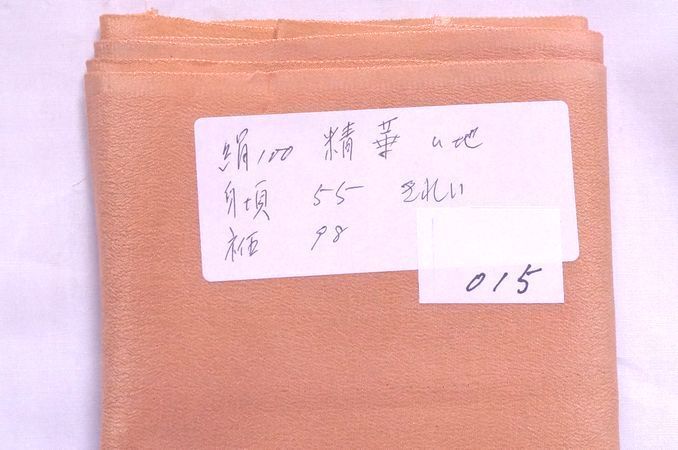 絹100 精華 い地
身頃 55 きれい
衽 98
015